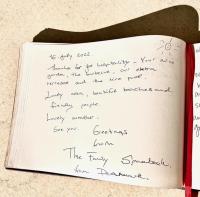 16 July 2022
Thanks for hospitality - Your nice
garden, the barbecue, our
terrasse and the nice pool.
Lovely area, beautiful beaches and
friendly people.
Lovely weather.
See you. Greetings
from
The Family
from Denmark.